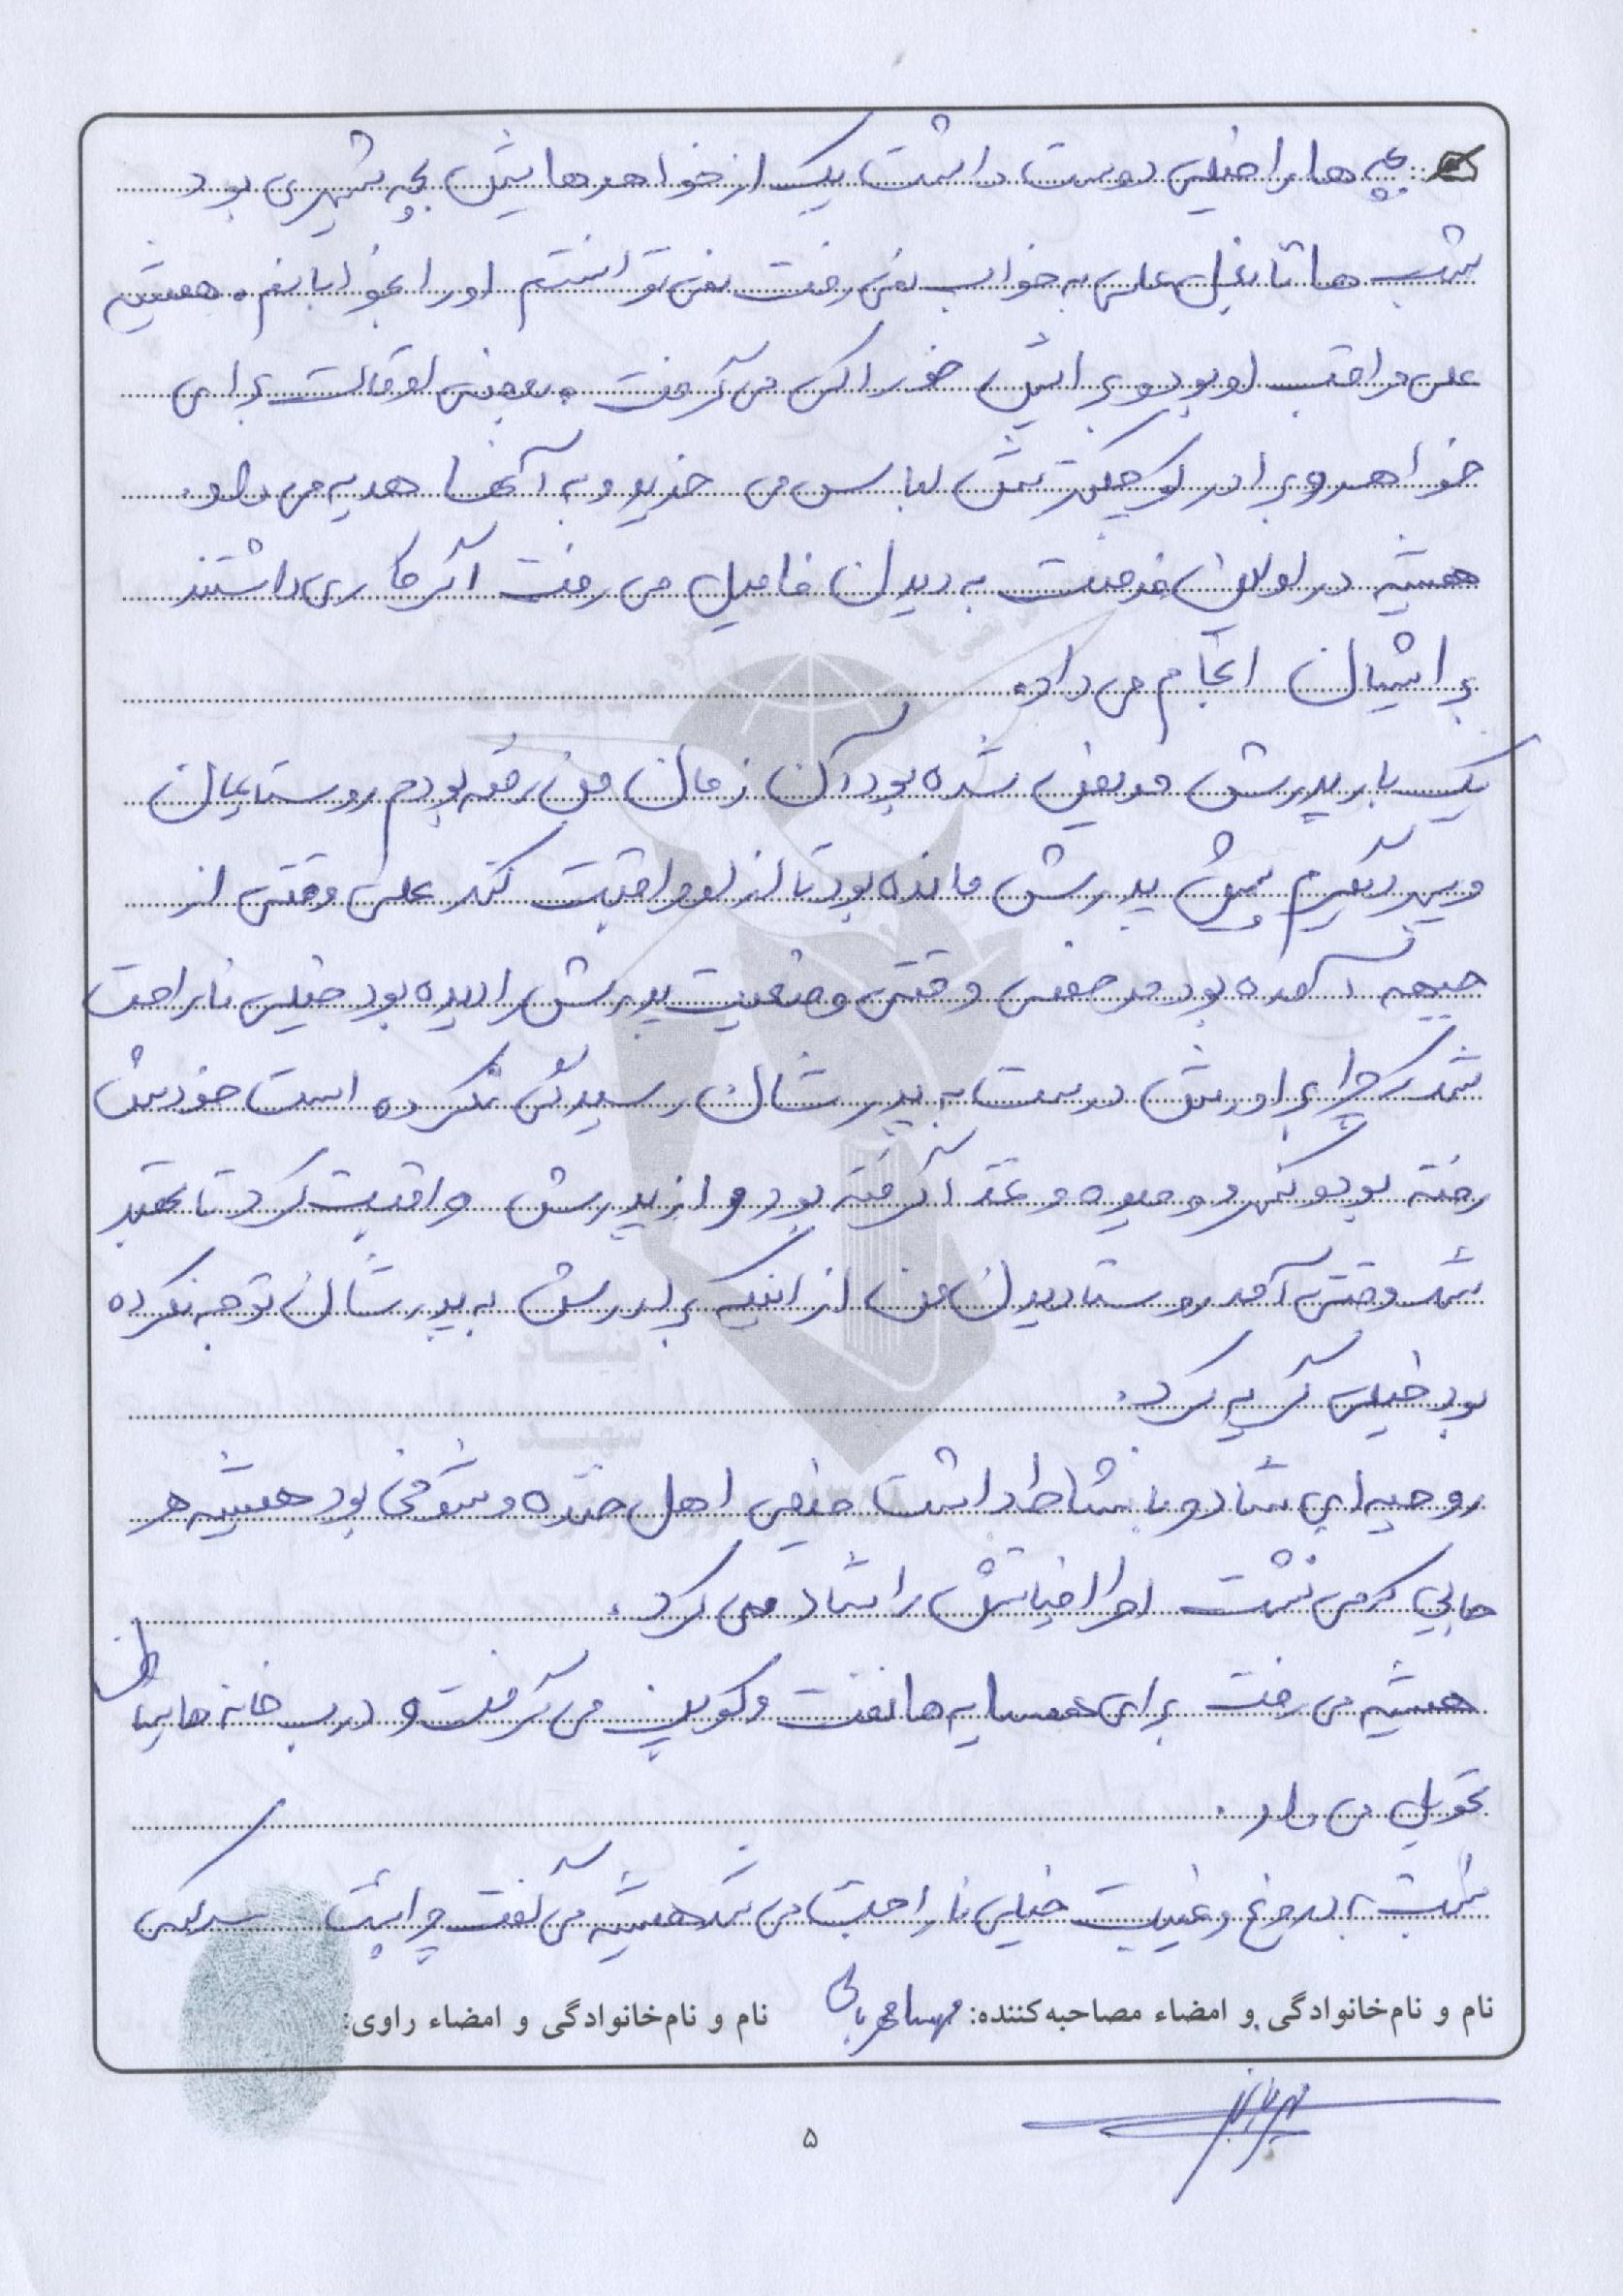 بچه ها را خیلی دوست داشت یک از خواهرهایش بچه شیری بود
شب ها تا بغل علی به خواب نمی رفت نمی توانستم او را بخوابانم. همیشه
علی مراقب او بود و برایش خوراکی می گرفت. بعضی اوقات برای
خواهر و برادر کوچکترش لباس می خرید و به آنها هدیه می داد.
همیشه در اولین فرصت به دیدن فامیل می رفت اگر کاری داشتند
برایشان انجام می داد.
یک بار پدرش مریض شده بود آن زمان من رفته بودم روستایمان
و پسر دیگرم پیش پدرش مانده بود تا از او مراقبت کند علی وقتی از
جبهه آمده بود مرخصی وقتی وضعیت پدرش را دیده بود خیلی ناراحت
شد که چرا برادرش درست به پدرشان رسیدگی نکرده است خودش
رفته بود و میوه و غذا گرفته بود و از پدرش مراقبت کرد تا بهتر
شد وقتی آمد روستا دیدن من از اینکه برادرش به پدرشان توجه نکرده
بود خیلی گریه کرد.
روحیه ای شاد و با نشاط داشت خیلی اهل خنده و شوخی بود همیشه هر
جایی که می نشست اطرافیانش را شاد می کرد.
همیشه می رفت برای همسایه ها نفت و کوپن می گرفت و درب خانه هایشان
تحویل می داد.
نسبت به دروغ و غیبت خیلی ناراحت می شد همیشه می گفت چرا پشت سر کسی
نام و نام‌خانوادگی و امضاء مصاحبه‌کننده: مهسا مهربانی نام و نام‌خانوادگی و امضاء راوی:
۵